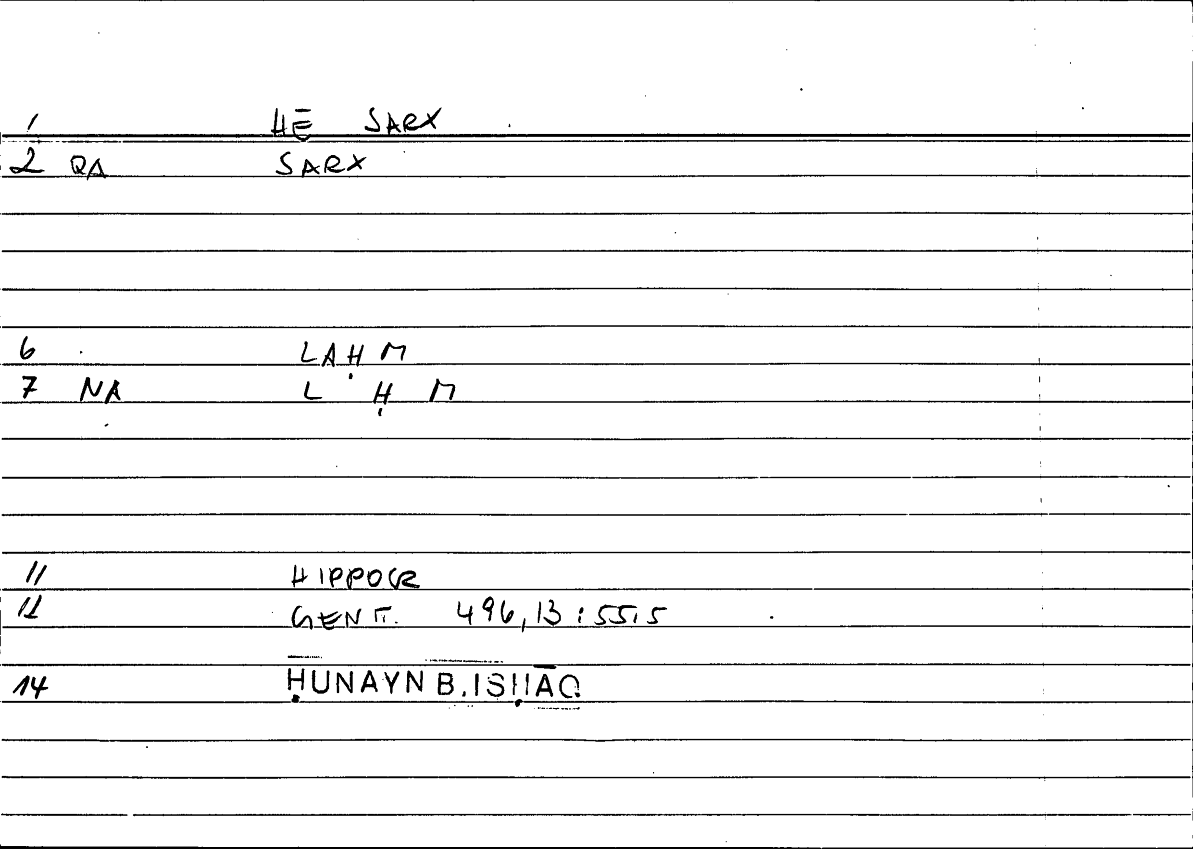 1 HĒ SARX
2 QA SARX
6 LAḤM
7 NA L Ḥ M
11 HIPPOCR
12 GENIT. 496,13 : 55,5
14 ḤUNAYN B. ISḤĀQ